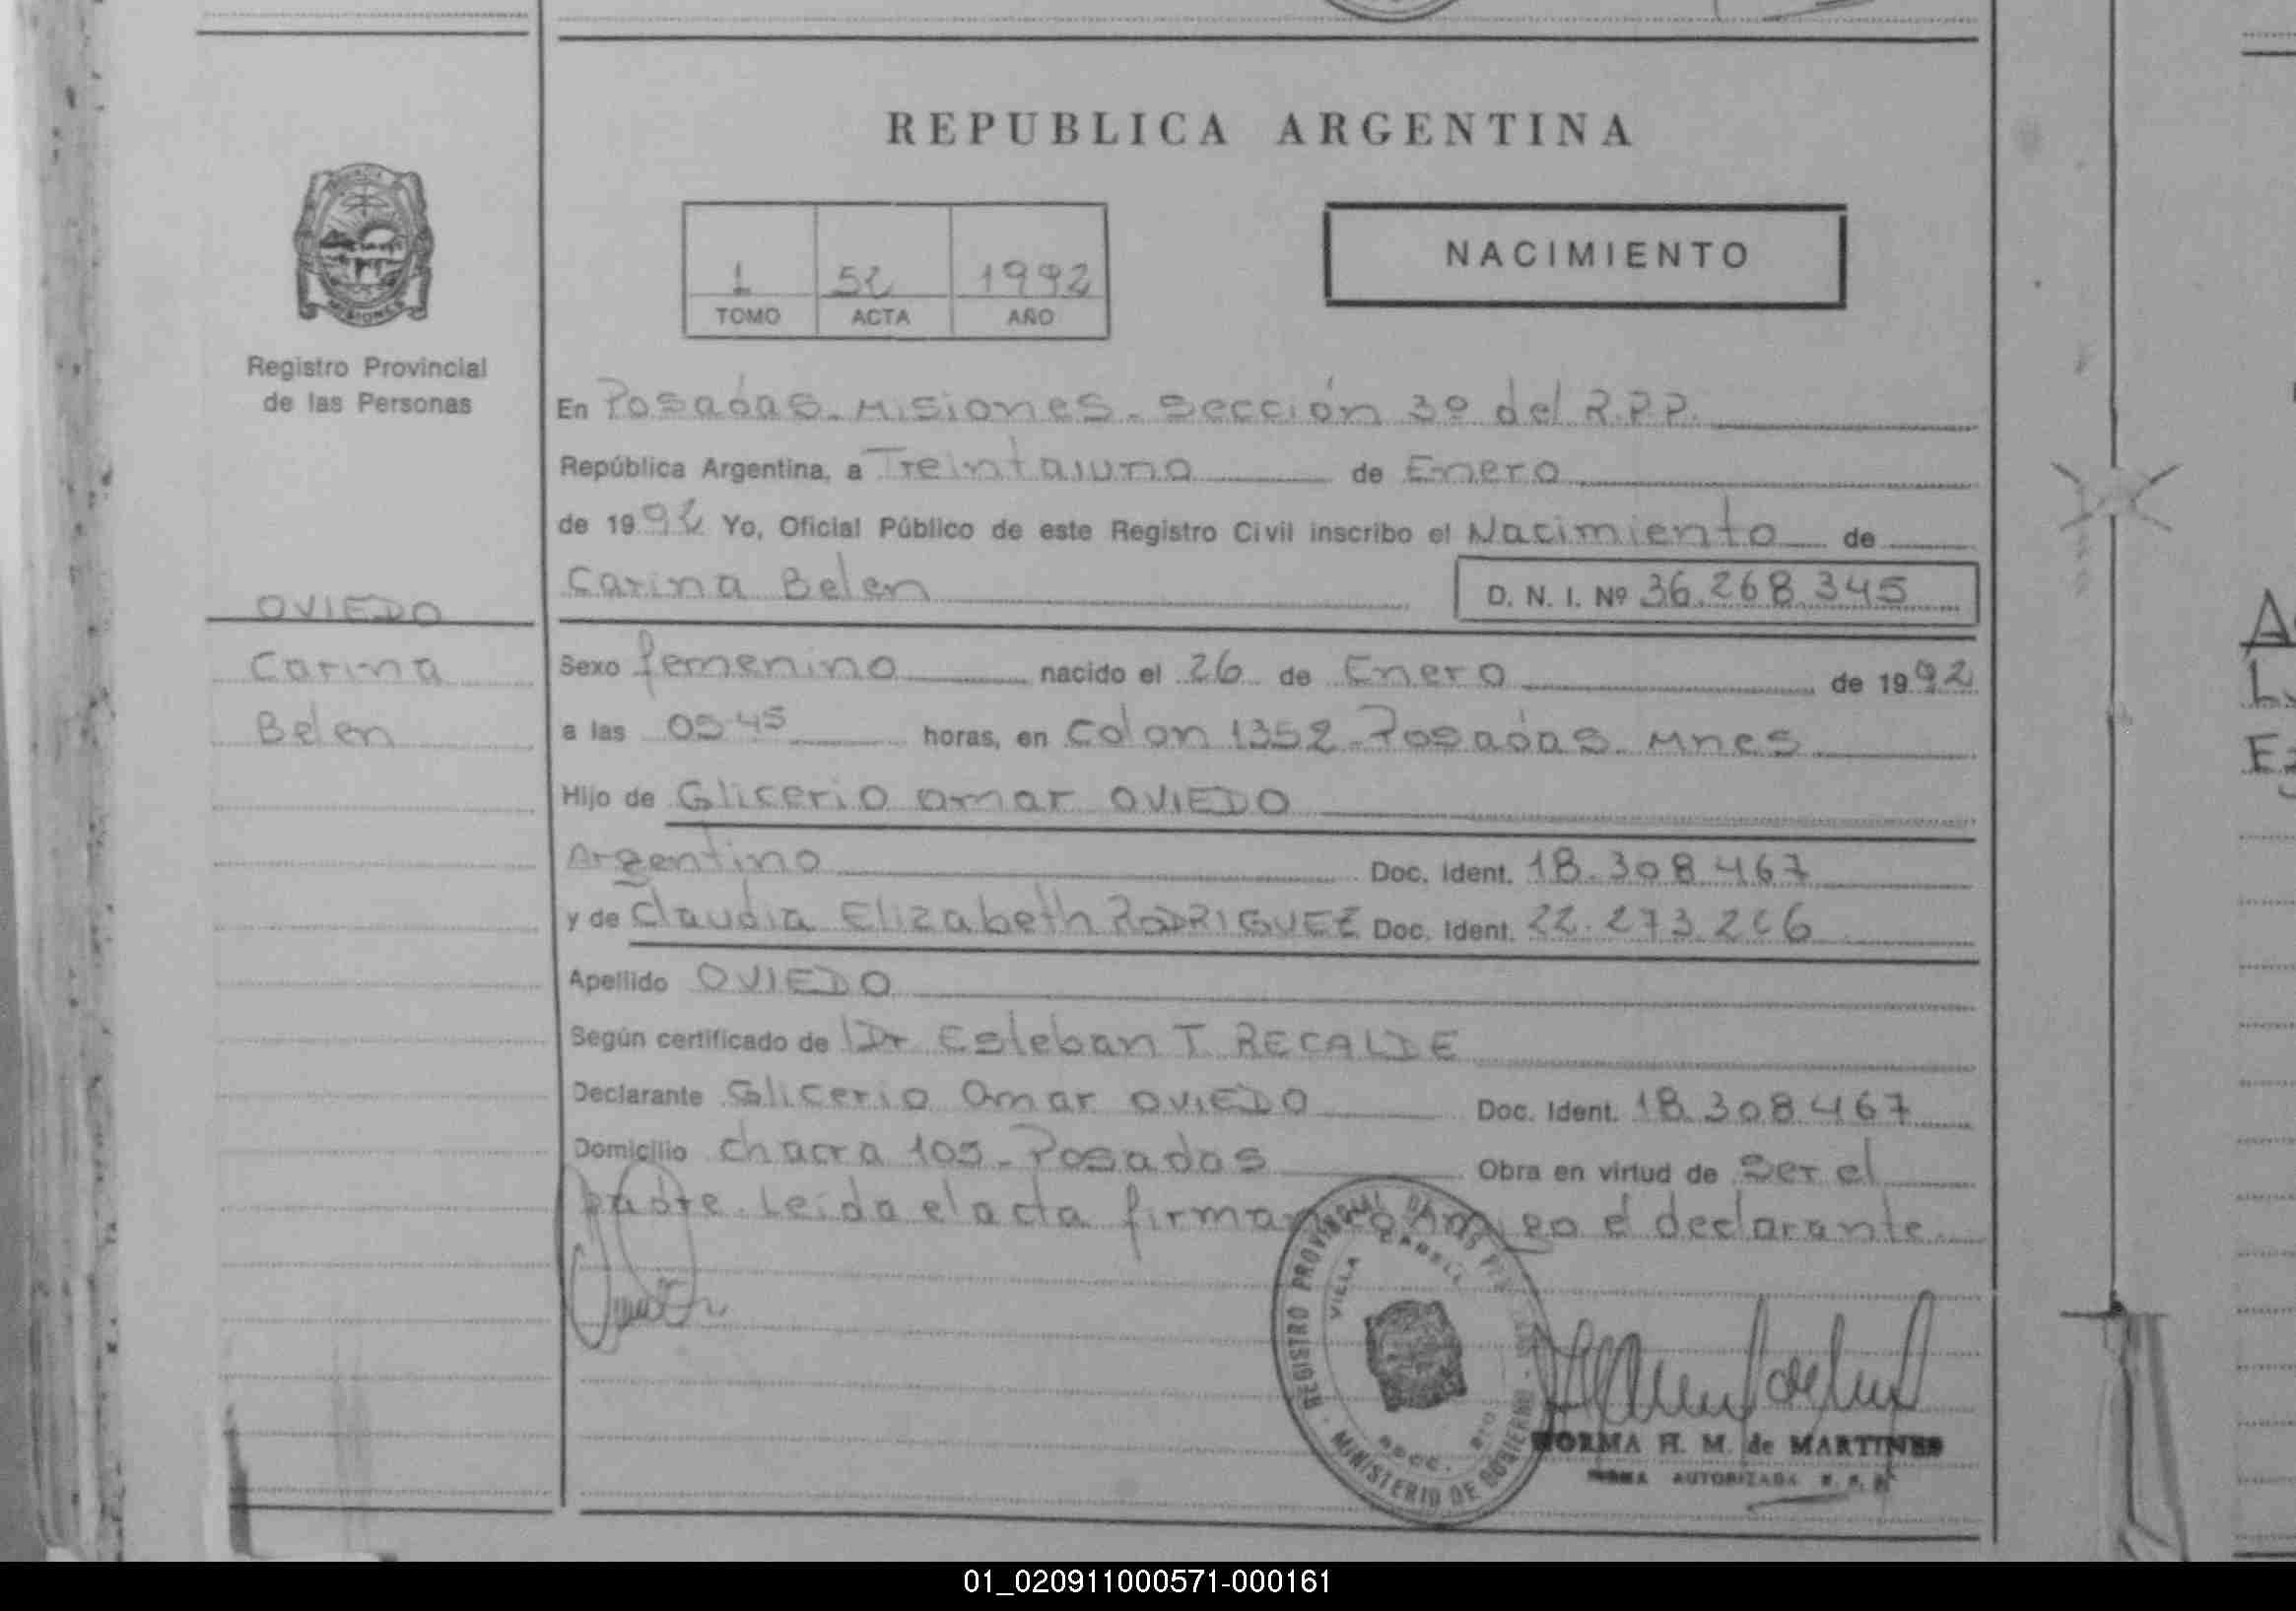 REPUBLICA ARGENTINA
1 52 1992
TOMO ACTA AÑO
NACIMIENTO
MISIONES
Registro Provincial
de las Personas
OVIEDO
Carina
Belen
En Posadas - Misiones - Sección 3º del R.P.P.
República Argentina, a Treintaiuno de Enero
de 1992 Yo, Oficial Público de este Registro Civil inscribo el Nacimiento de
Carina Belen D. N. I. Nº 36.268.345
Sexo femenino nacido el 26 de Enero de 1992
a las 05 45 horas, en Colon 1352 - Posadas - Mnes
Hijo de Glicerio Omar OVIEDO
Argentino Doc. Ident. 18.308.467
y de Claudia Elizabeth RODRIGUEZ Doc. Ident. 22.273.226
Apellido OVIEDO
Según certificado de Dr Esteban T. RECALDE
Declarante Glicerio Omar OVIEDO Doc. Ident. 18.308.467
Domicilio Chacra 105 - Posadas Obra en virtud de ser el
padre. Leida el acta firman conmigo el declarante
REGISTRO PROVINCIAL DE LAS PERSONAS
VILLA
MINISTERIO DE GOBIERNO
NORMA H. M. de MARTINES
FIRMA AUTORIZADA R. P. P.
01_020911000571-000161